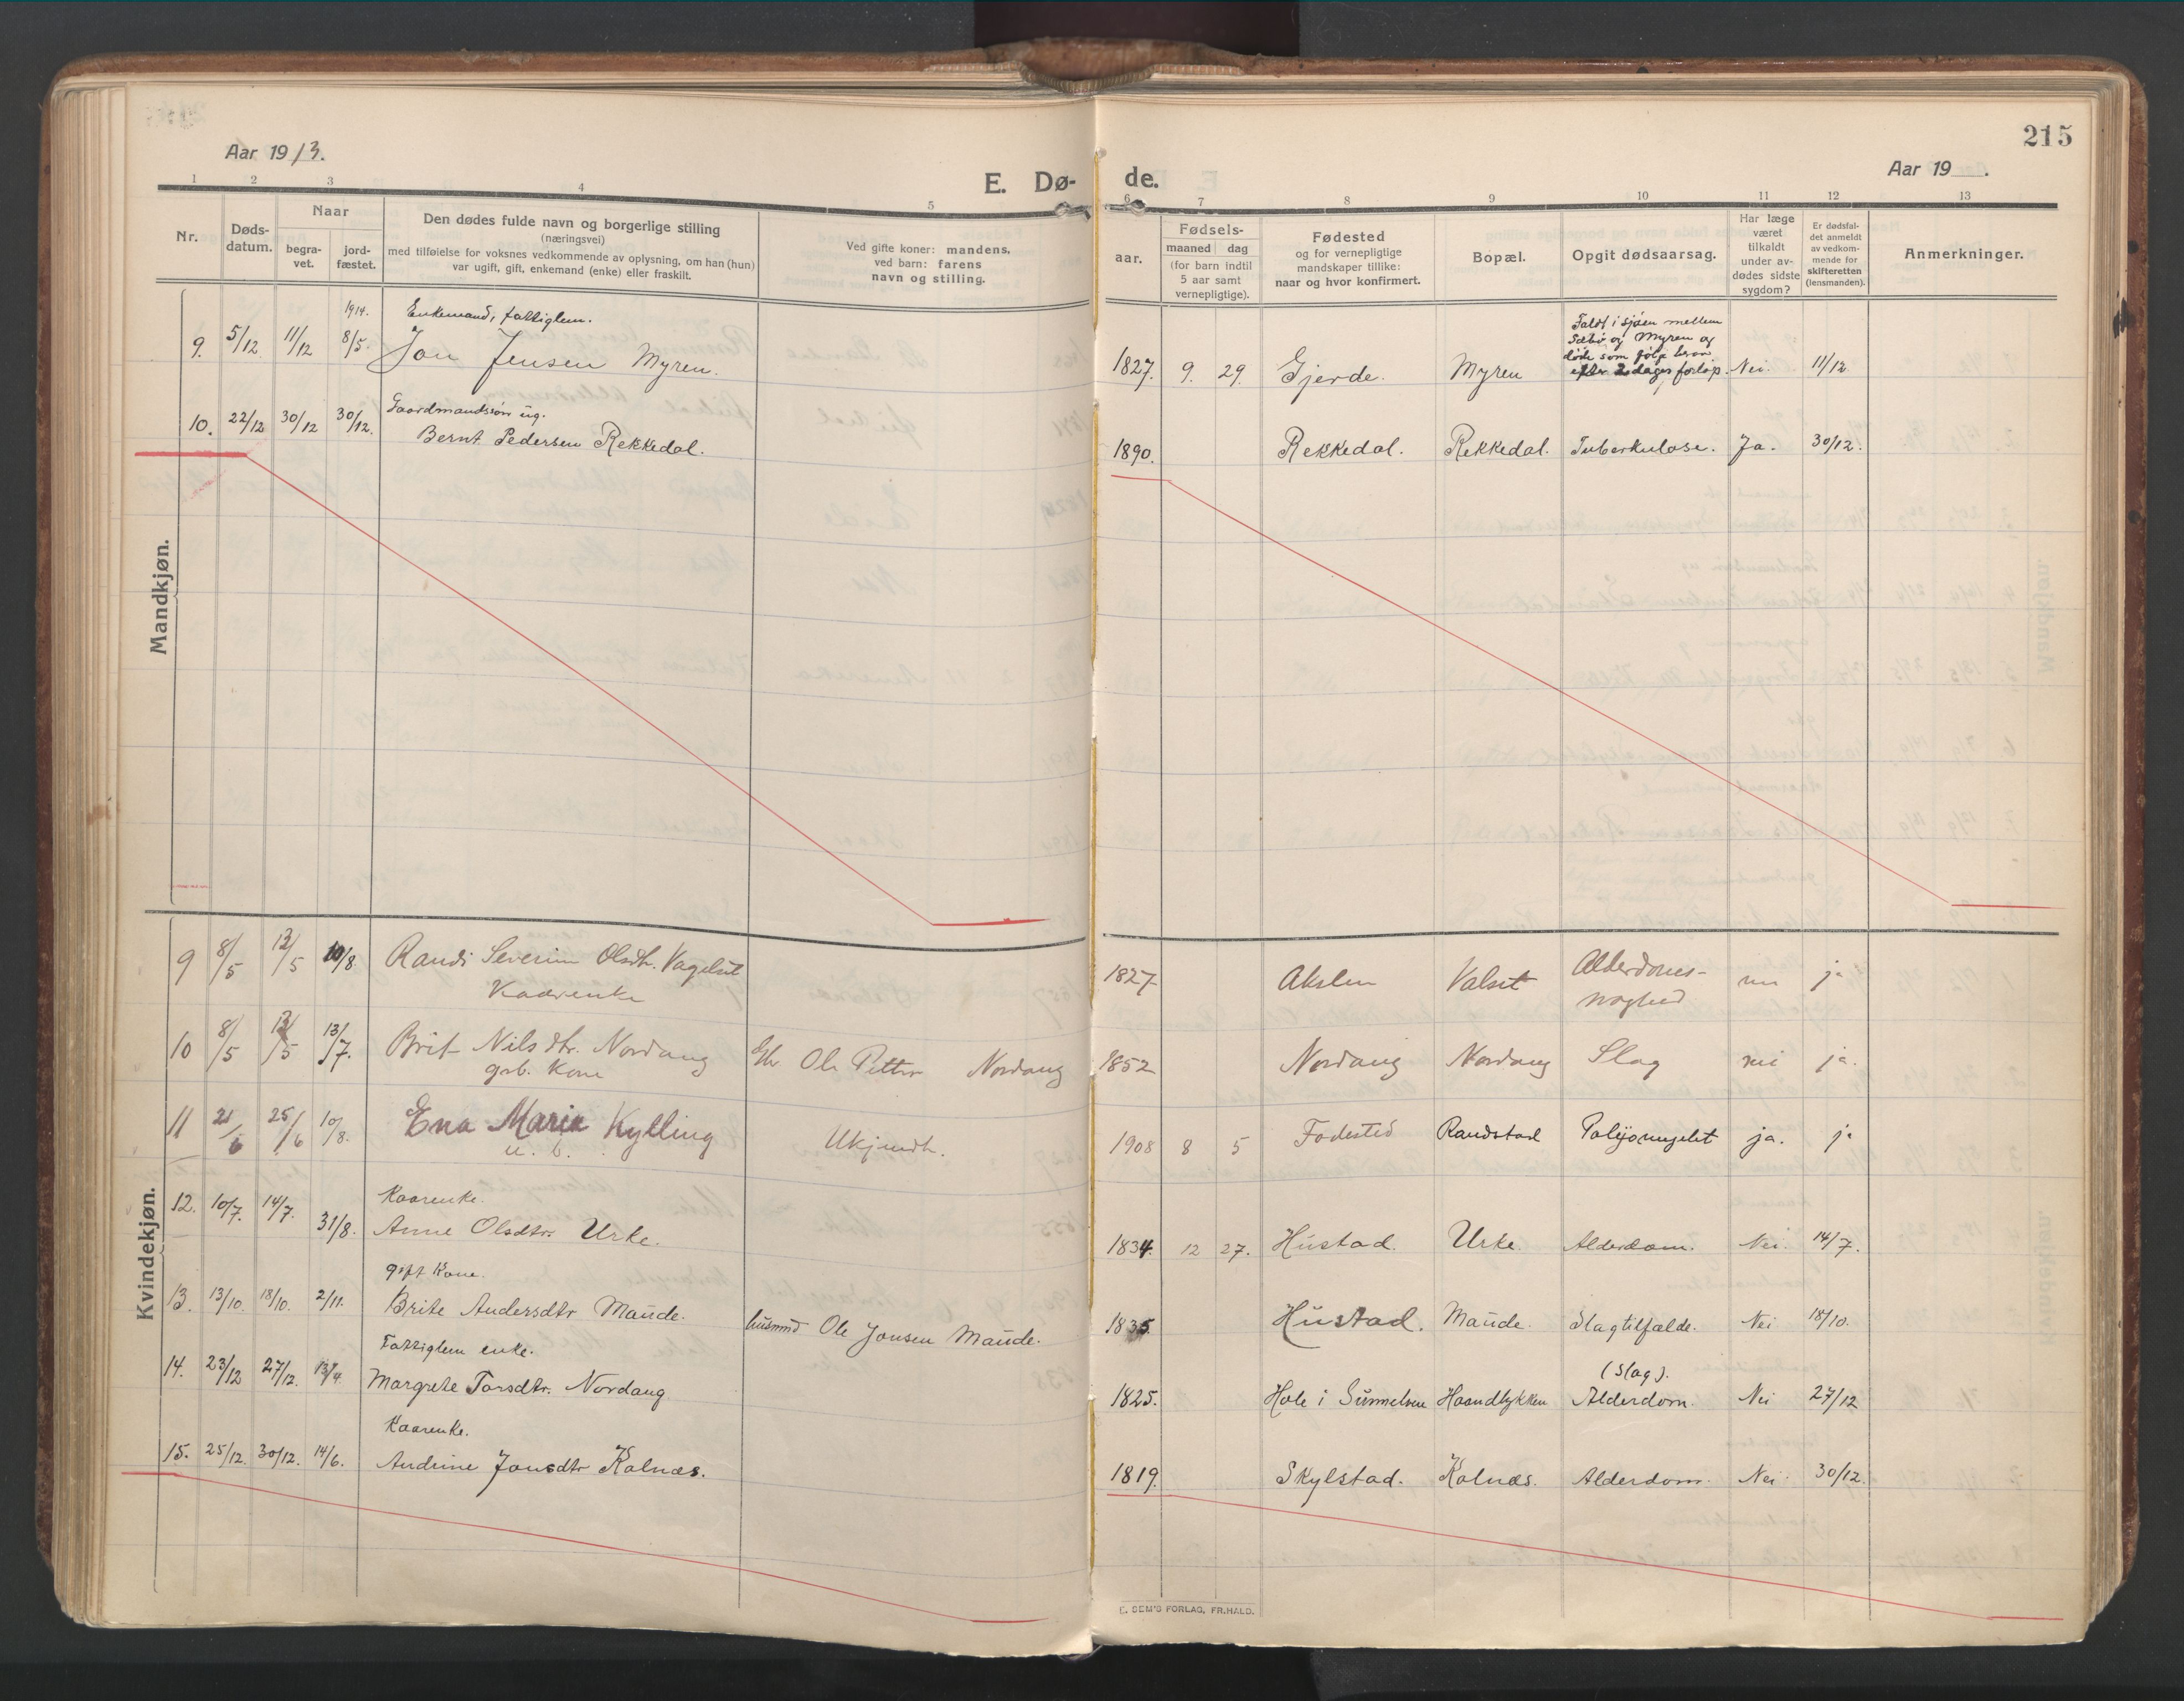 215
Aar 1913.
Aar 19 .
E. Dø- de.
1 2 3 4 5 6 7 8 9 10 11 12 13
Nr.
Døds-
datum.
Naar
begra-
vet.
jord-
fæstet.
Den dødes fulde navn og borgerlige stilling
(næringsvei)
med tilføielse for voksnes vedkommende av oplysning, om han (hun)
var ugift, gift, enkemand (enke) eller fraskilt.
Ved gifte koner: mandens,
ved barn: farens
navn og stilling.
Fødsels-
aar.
maaned dag
(for barn indtil
5 aar samt
vernepligtige).
Fødested
og for vernepligtige
mandskaper tillike:
naar og hvor konfirmert.
Bopæl.
Opgit dødsaarsag.
Har læge
været
tilkaldt
under av-
dødes sidste
sygdom?
Er dødsfal-
det anmeldt
av vedkom-
mende for
skifteretten
(lensmanden).
Anmerkninger.
Mandkjøn.
1914. Enkemand, fattiglem. Faldt i sjøen mellem
Sæbø og Myren og
døde som følje herav
9. 5/12 11/12 8/5. Jon Jensen Myren. 1827. 9. 29. Gjerde. Myren efter 2 dages forløp. Nei. 11/12.
Gaardmandssøn ug.
10. 22/12 30/12 30/12. Bernt Pedersen Rekkedal. 1890. Rekkedal. Rekkedal. Tuberkulose. Ja. 30/12.
Kvindekjøn.
9 8/5 12/5 10/8. Randi Severine Olsdtr. Vagelset 1827 Akslen Valset Alderdoms- ja
Kaarenke
10 8/5 13/5 13/7. Brit Nilsdtr. Nordang Gbr Ole Petter Nordang 1852 Nordang Nordang Slag nei ja.
grb. Kone
11 21/6 25/6 10/8. Ena Maria Kylling Ukjendt. 1908 8 5 Fodested Randstad ja. ja
u. b.
Kaarenke.
12. 10/7. 14/7. 31/8. Anne Olsdtr. Urke. 1834. 12 27. Hustad. Urke. Alderdom. Nei. 14/7.
gift Kone.
13. 13/10. 18/10. 2/11. Brite Andersdtr Maude. husmd Ole Jonsen Maude. 1835 Hustad. Maude. Slagtilfælde. Nei 18/10.
Fattiglem enke. (Slag).
14. 23/12 27/12. 13/4. Margrete Torsdtr. Nordang. 1825. Hole i Sunnelven Haandlykken Alderdom. Nei 27/12
Kaarenke.
15. 25/12. 30/12. 14/6. Andrine Jonsdtr Kolnæs. 1819. Skylstad. Kolnæs. Alderdom. Nei. 30/12.
E. SEM'S FORLAG, FR.HALD.